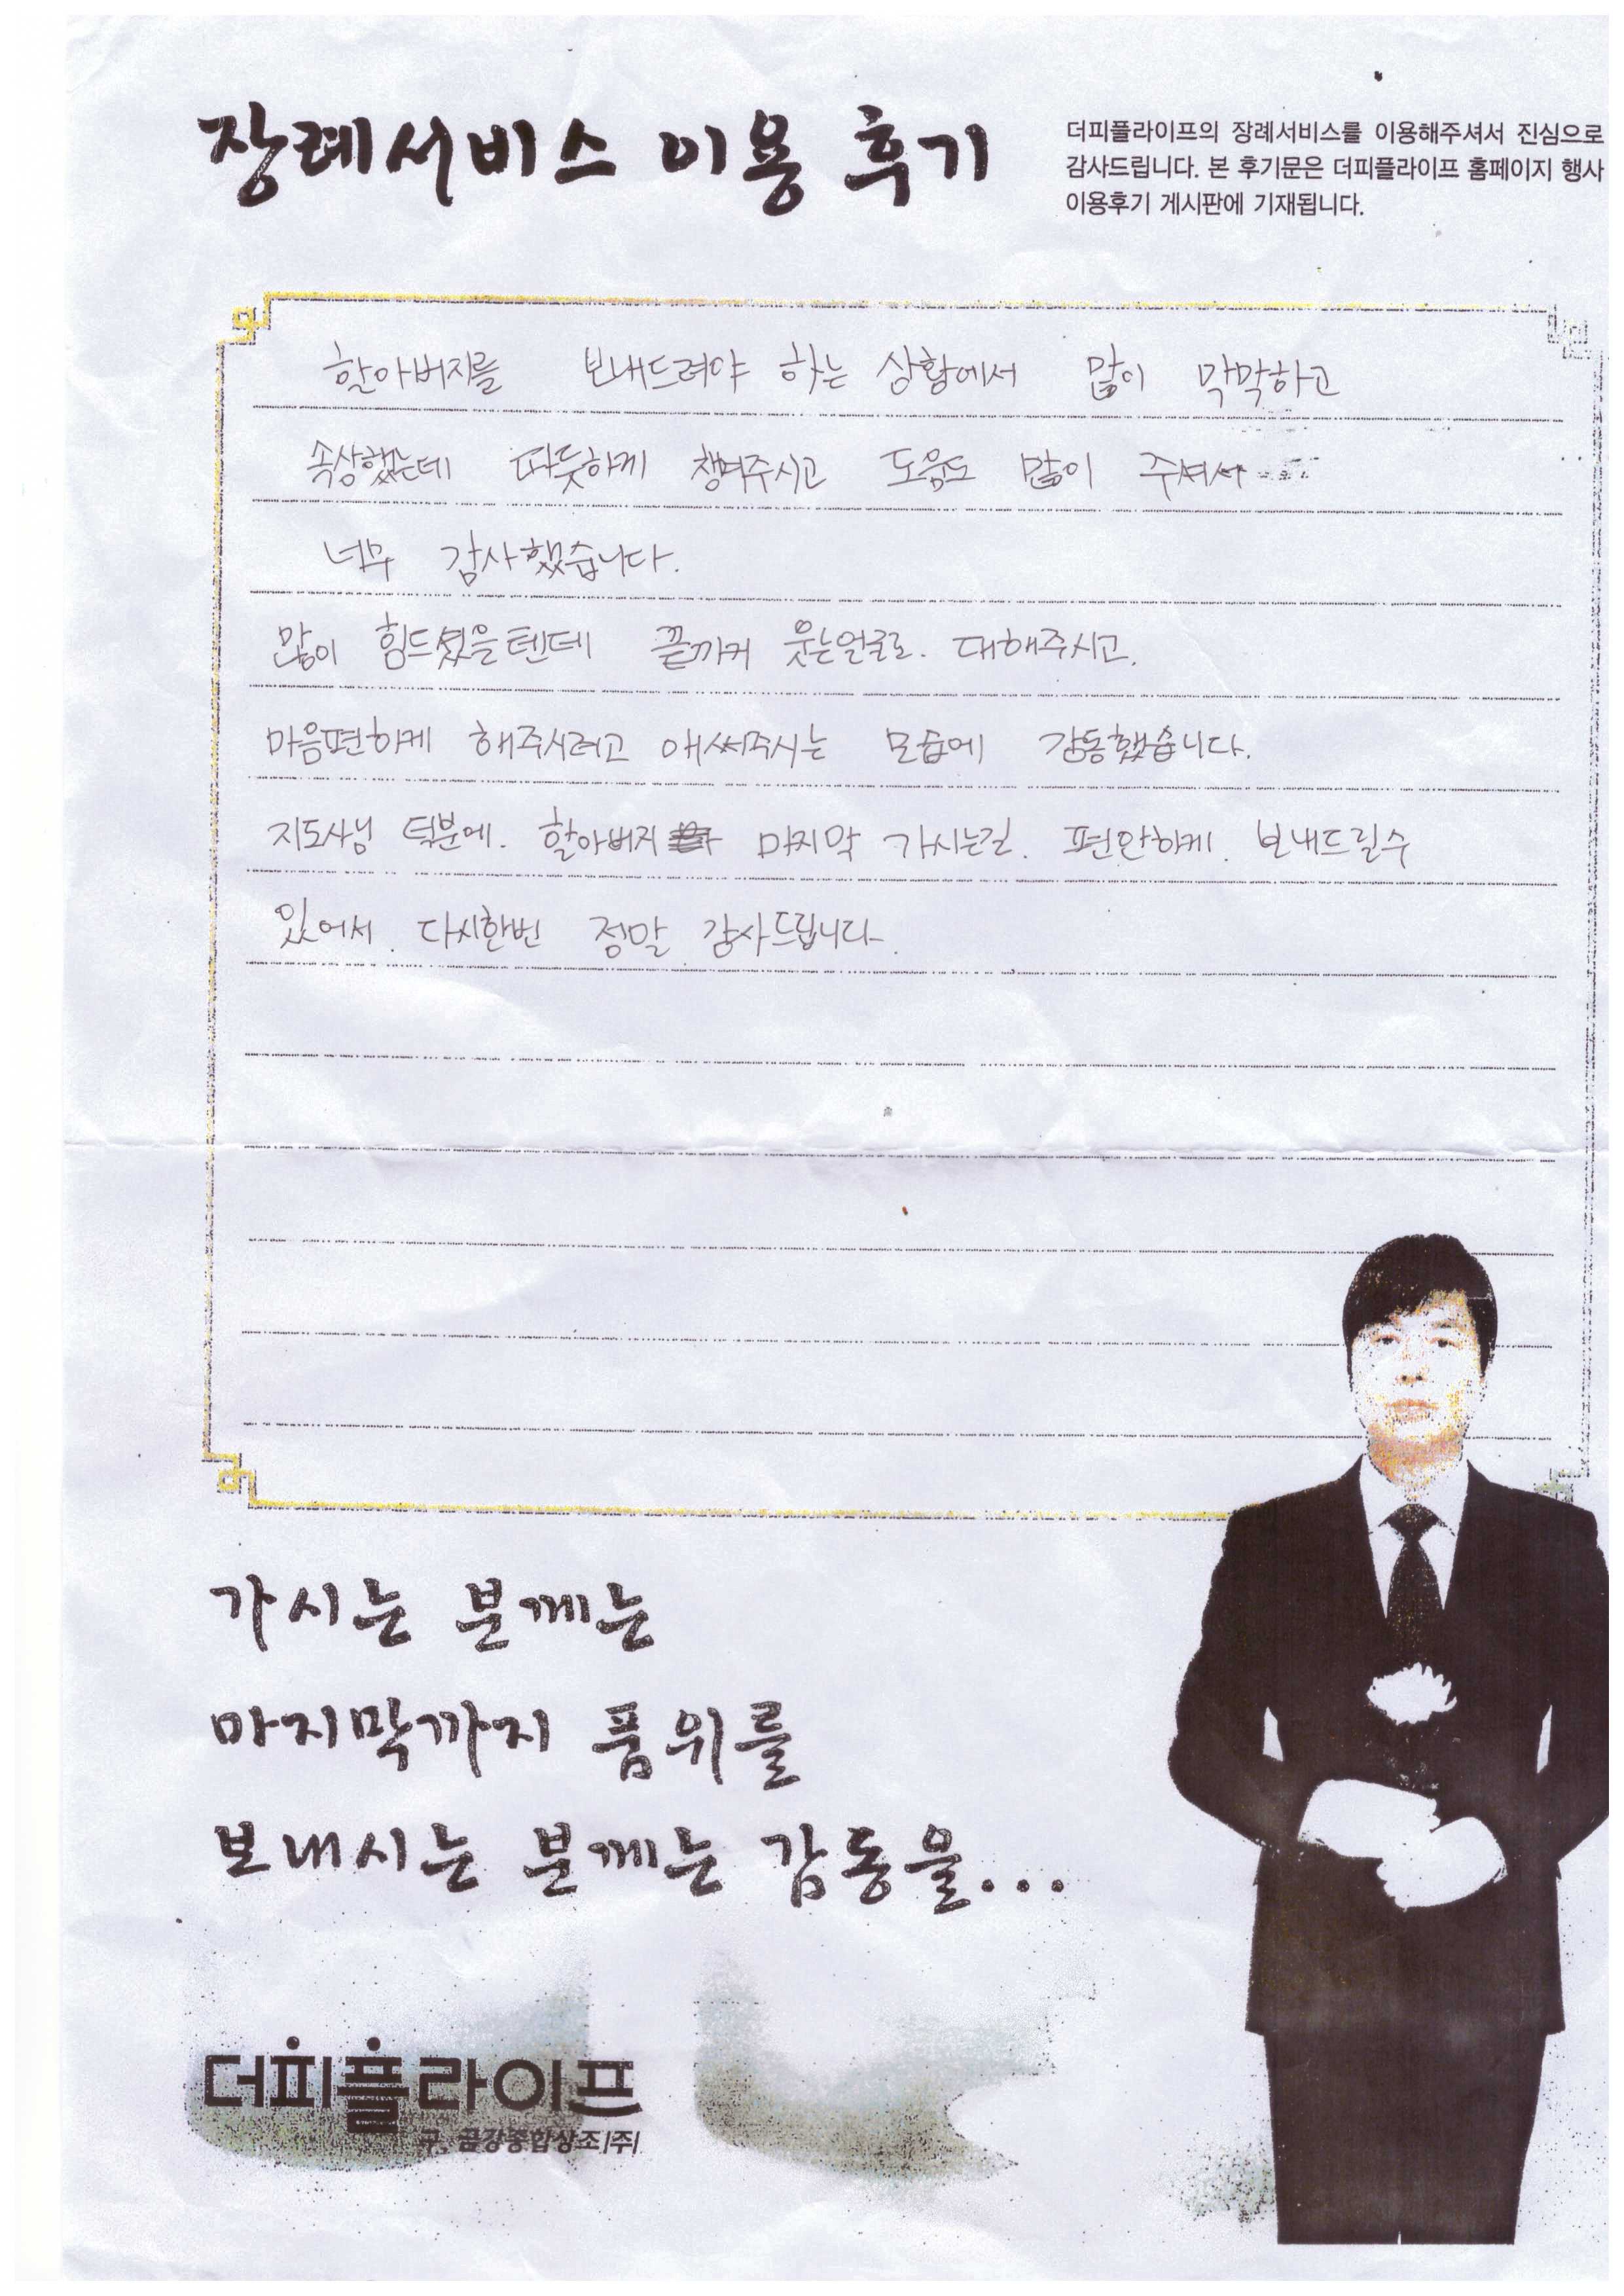 장례서비스 이용 후기
더피플라이프의 장례서비스를 이용해주셔서 진심으로
감사드립니다. 본 후기문은 더피플라이프 홈페이지 행사
이용후기 게시판에 기재됩니다.
할아버지를 보내드려야 하는 상황에서 많이 막막하고
속상했는데 따듯하게 챙겨주시고 도움도 많이 주셔서
너무 감사했습니다.
많이 힘드셨을텐데 끝까지 웃는얼굴로. 대해주시고.
마음편하게 해주시려고 애써주시는 모습에 감동했습니다.
지도사님 덕분에. 할아버지 마지막 가시는길. 편안하게. 보내드릴수
있어서. 다시한번 정말 감사드립니다.
가시는 분께는
마지막까지 품위를
보내시는 분께는 감동을...
더피플라이프
구. 금강종합상조(주)